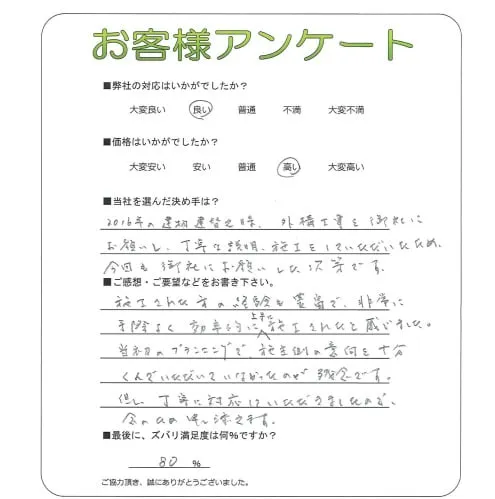 お客様アンケート
■弊社の対応はいかがでしたか？
大変良い 良い 普通 不満 大変不満
■価格はいかがでしたか？
大変安い 安い 普通 高い 大変高い
■当社を選んだ決め手は？
2016年の建物建替之時、外構工事を御社に
お願いし、丁寧な説明、施工をしていただいたため、
今回も御社にお願いした次第です。
■ご感想・ご要望などをお書き下さい。
施工された方の経験も豊富で、非常に
手際よく効率的に上手に施工されたと感じました。
当初のプランニングで、施主側の意向を十分
くんでいただいていなかったのが残念です。
但し、丁寧に対応いただきましたので、
念のため申し添えます。
■最後に、ズバリ満足度は何％ですか？
80 ％
ご協力頂き、誠にありがとうございました。